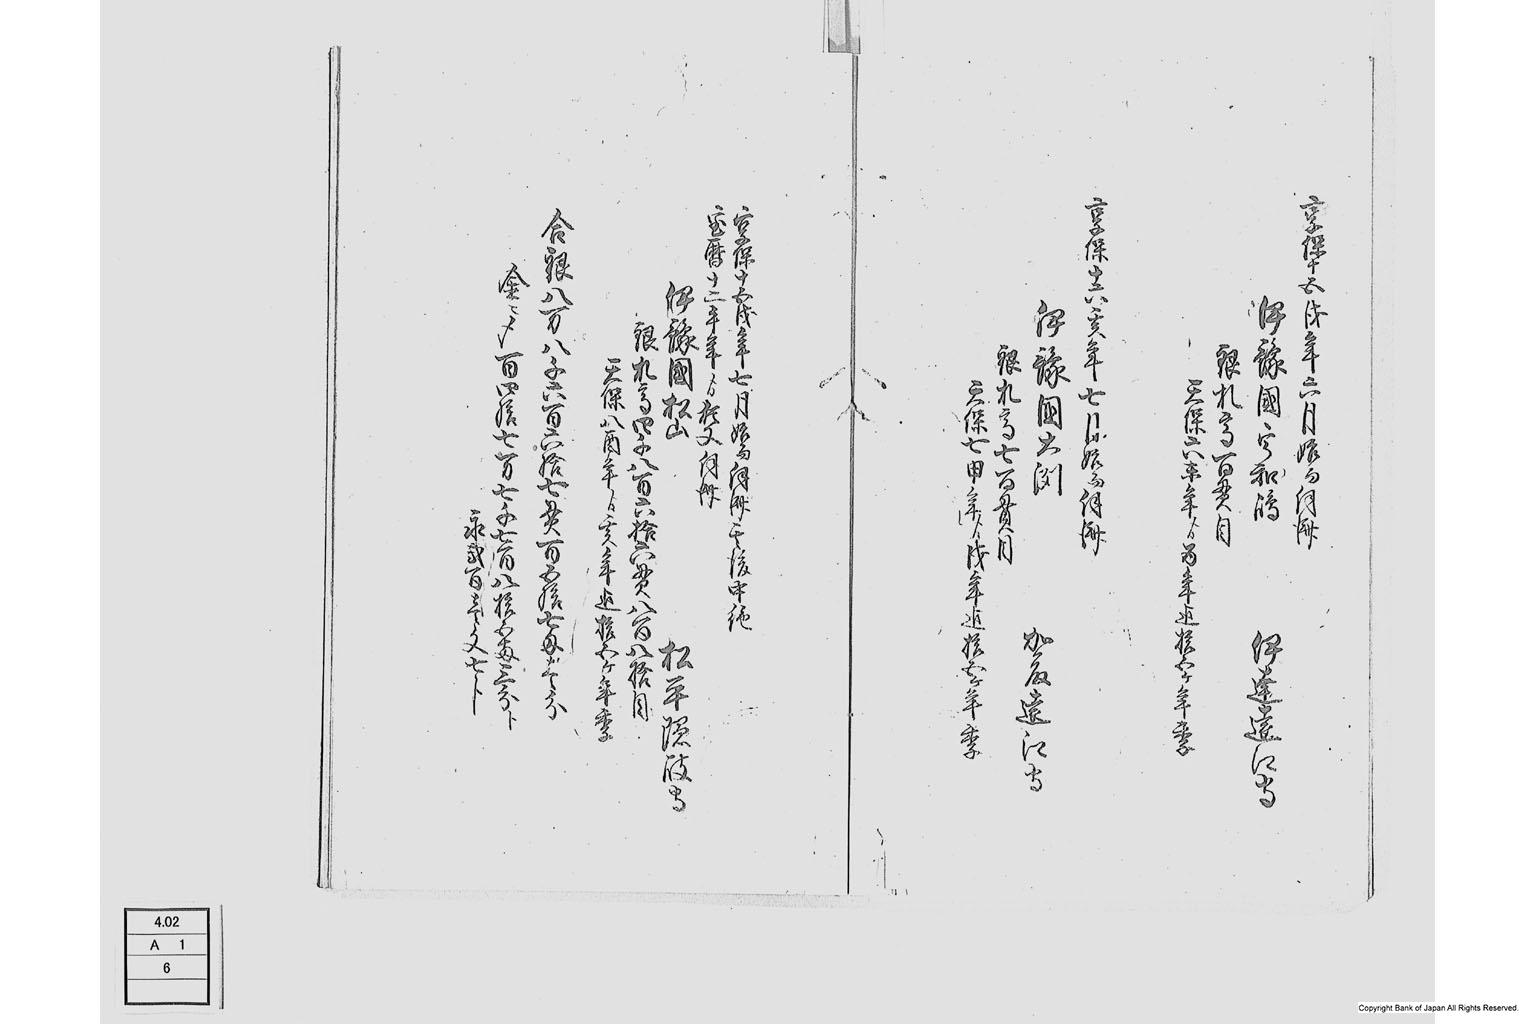 享保十五戌年六月始而行届
伊豫國宇和嶋
伊達遠江守
銀札高百貫目
天保六未年ゟ酉年迄拾五ケ年季
享保十六亥年七月始而行届
伊豫國大洲
加藤遠江守
銀札高七百貫目
天保七申年ゟ戌年迄拾五ケ年季
享保十五戌年七月始而行届其後中絶
宝暦十二午年ゟ猶又行届
伊豫國松山
松平隠岐守
銀札高四千八百六拾六貫八百八拾目
天保八酉年ゟ亥年迄拾五ケ年季
合銀八万八千六百六拾七貫百五拾七匁壱分
金ニ〆百四拾七万七千七百八拾五両三分ト
永弐百壱文七分
4.02
A 1
6
Copyright Bank of Japan All Rights Reserved.